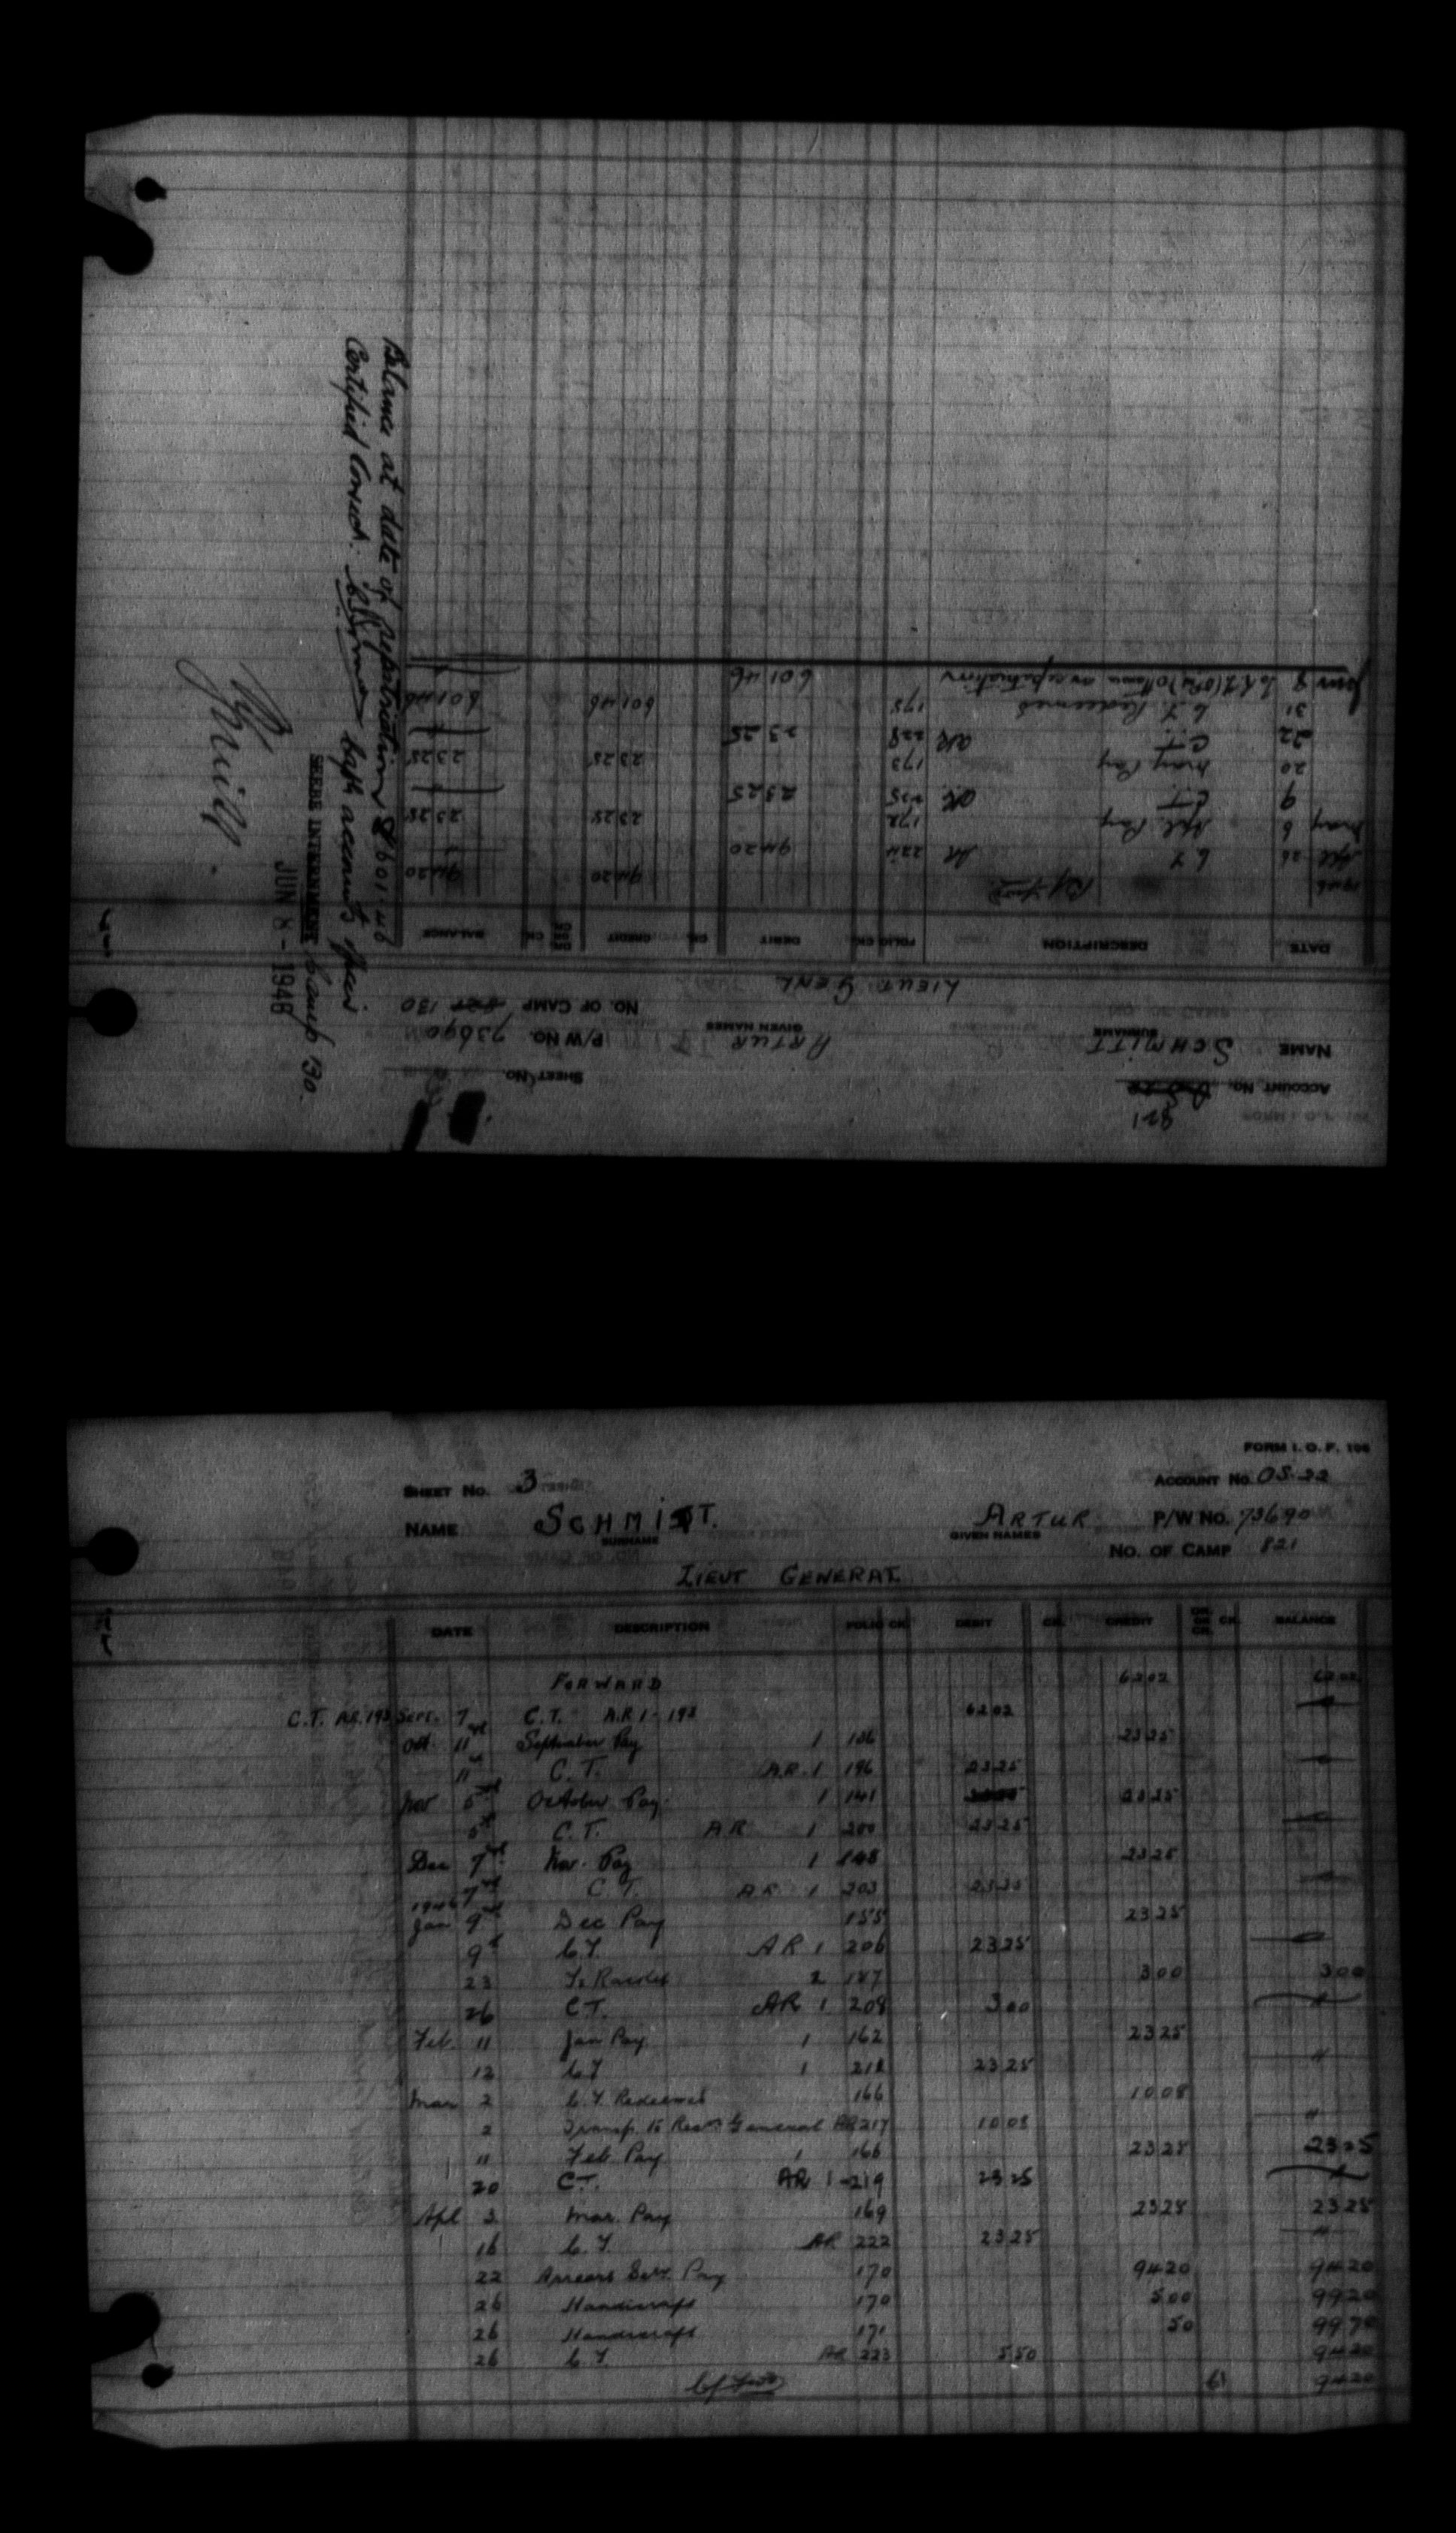 Balance at date of repatriation $601.46
Certified Correct.
SEEBE INTERNMENT Camp 130.
JUN 8 - 1946
821
FORM I. O. F. 106
ACCOUNT NO.
SHEET NO.
NAME SCHMITT ARTUR P/W NO. 73690
SURNAME GIVEN NAMES
NO. OF CAMP 130
LIEUT. GENL
DATE DESCRIPTION FOLIO CK. DEBIT CK. CREDIT DR. OR CR. CK. BALANCE
1946 94 20 94 20
Apl 26 C.T. AR 224 94 20
May 6 Apl. Pay 172 23 25 23 25
9 C.T. AR 225 23 25
20 May Pay 173 23 25 23 25
22 C.T. AR 228 23 25
31 C.T. Redeemed 175 601 46 601 46
June 8 Ottawa on repatriation 601 46
FORM I. O. F. 106
SHEET NO. 3 ACCOUNT NO. OS-22
NAME SCHMITT. ARTUR P/W NO. 73690
SURNAME GIVEN NAMES
NO. OF CAMP 821
LIEUT GENERAL
DATE DESCRIPTION FOLIO CK. DEBIT CK. CREDIT DR. OR CR. CK. BALANCE
FORWARD 62 02 62 02
C.T. AR. 193 Sept. 7 C.T. A.R 1 - 193 62 02
Oct. 11 September Pay 1 136 23 25
11 C.T. A.R. 1 196 23 25
Nov 5 October Pay. 1 141 23 25
5 C.T. AR 1 200 23 25
Dec 7 Nov. Pay 1 148 23 25
7 C.T. AR 1 203 23 25
1946
Jan 9 Dec Pay 155 23 25
9 C.T. AR 1 206 23 25
23 2 157 3 00 3 00
26 C.T. AR 1 208 3 00
Feb. 11 Jan Pay 1 162 23 25
12 C.T 1 212 23 25
Mar 2 C.T. Redeemed 166 10 08
2 Transf. to General AR 217 10 08
11 Feb Pay 1 166 23 25 23 25
20 C.T. AR 1-219 23 25
Apl 3 Mar. Pay 169 23 25 23 25
16 C.T. AR 222 23 25
22 Arrears Pay 170 94 20 94 20
26 Handicraft 170 5 00 99 20
26 Handicraft 171 50 99 70
26 C.T. AR 223 5 50 94 20
94 20